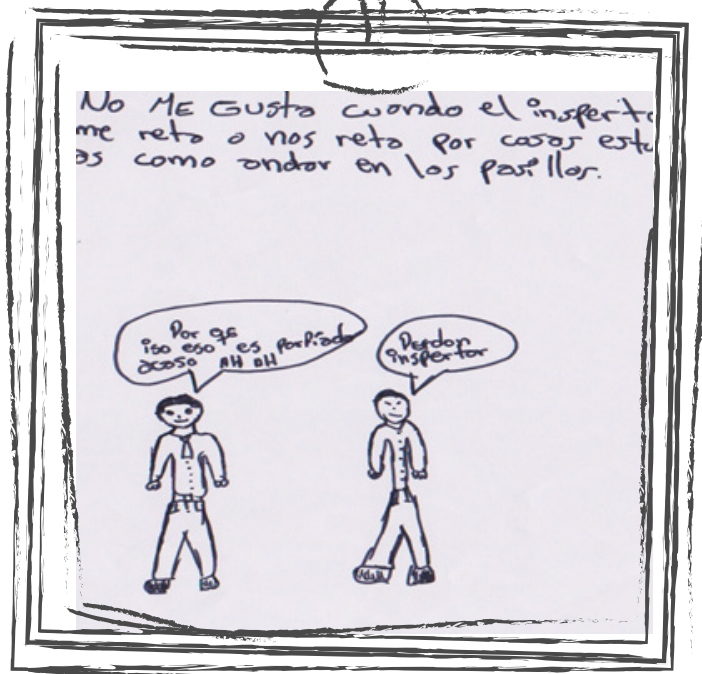 No ME GUSTA cuando el inspert
me reta o nos reta por cosas est
as como andar en los pasillos.
Por qe
iso eso es porfiado
acoso AH AH
Perdon
inspertor